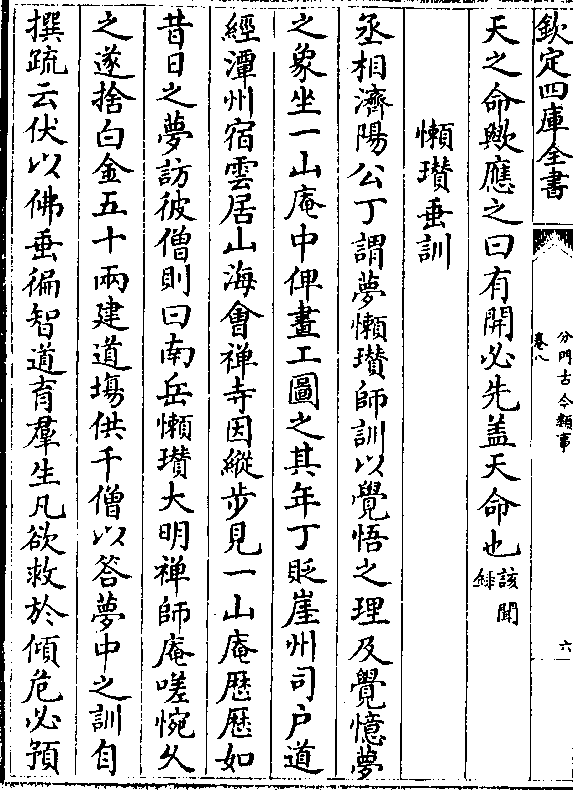 欽定四庫全書
分門古今類事
卷八
六
天之命歟應之曰有開必先盖天命也該聞
錄
懶瓚垂訓
丞相濟陽公丁謂夢懶瓚師訓以覺悟之理及覺憶夢
之象坐一山庵中俾畫工圖之其年丁貶崖州司户道
經潭州宿雲居山海會禅寺因縱步見一山庵歴歴如
昔日之夢訪彼僧則曰南岳懶瓚大明禅師庵嗟惋久
之遂捨白金五十兩建道塲供千僧以答夢中之訓自
撰疏云伏以佛垂徧智道育羣生凡欲救於傾危必預